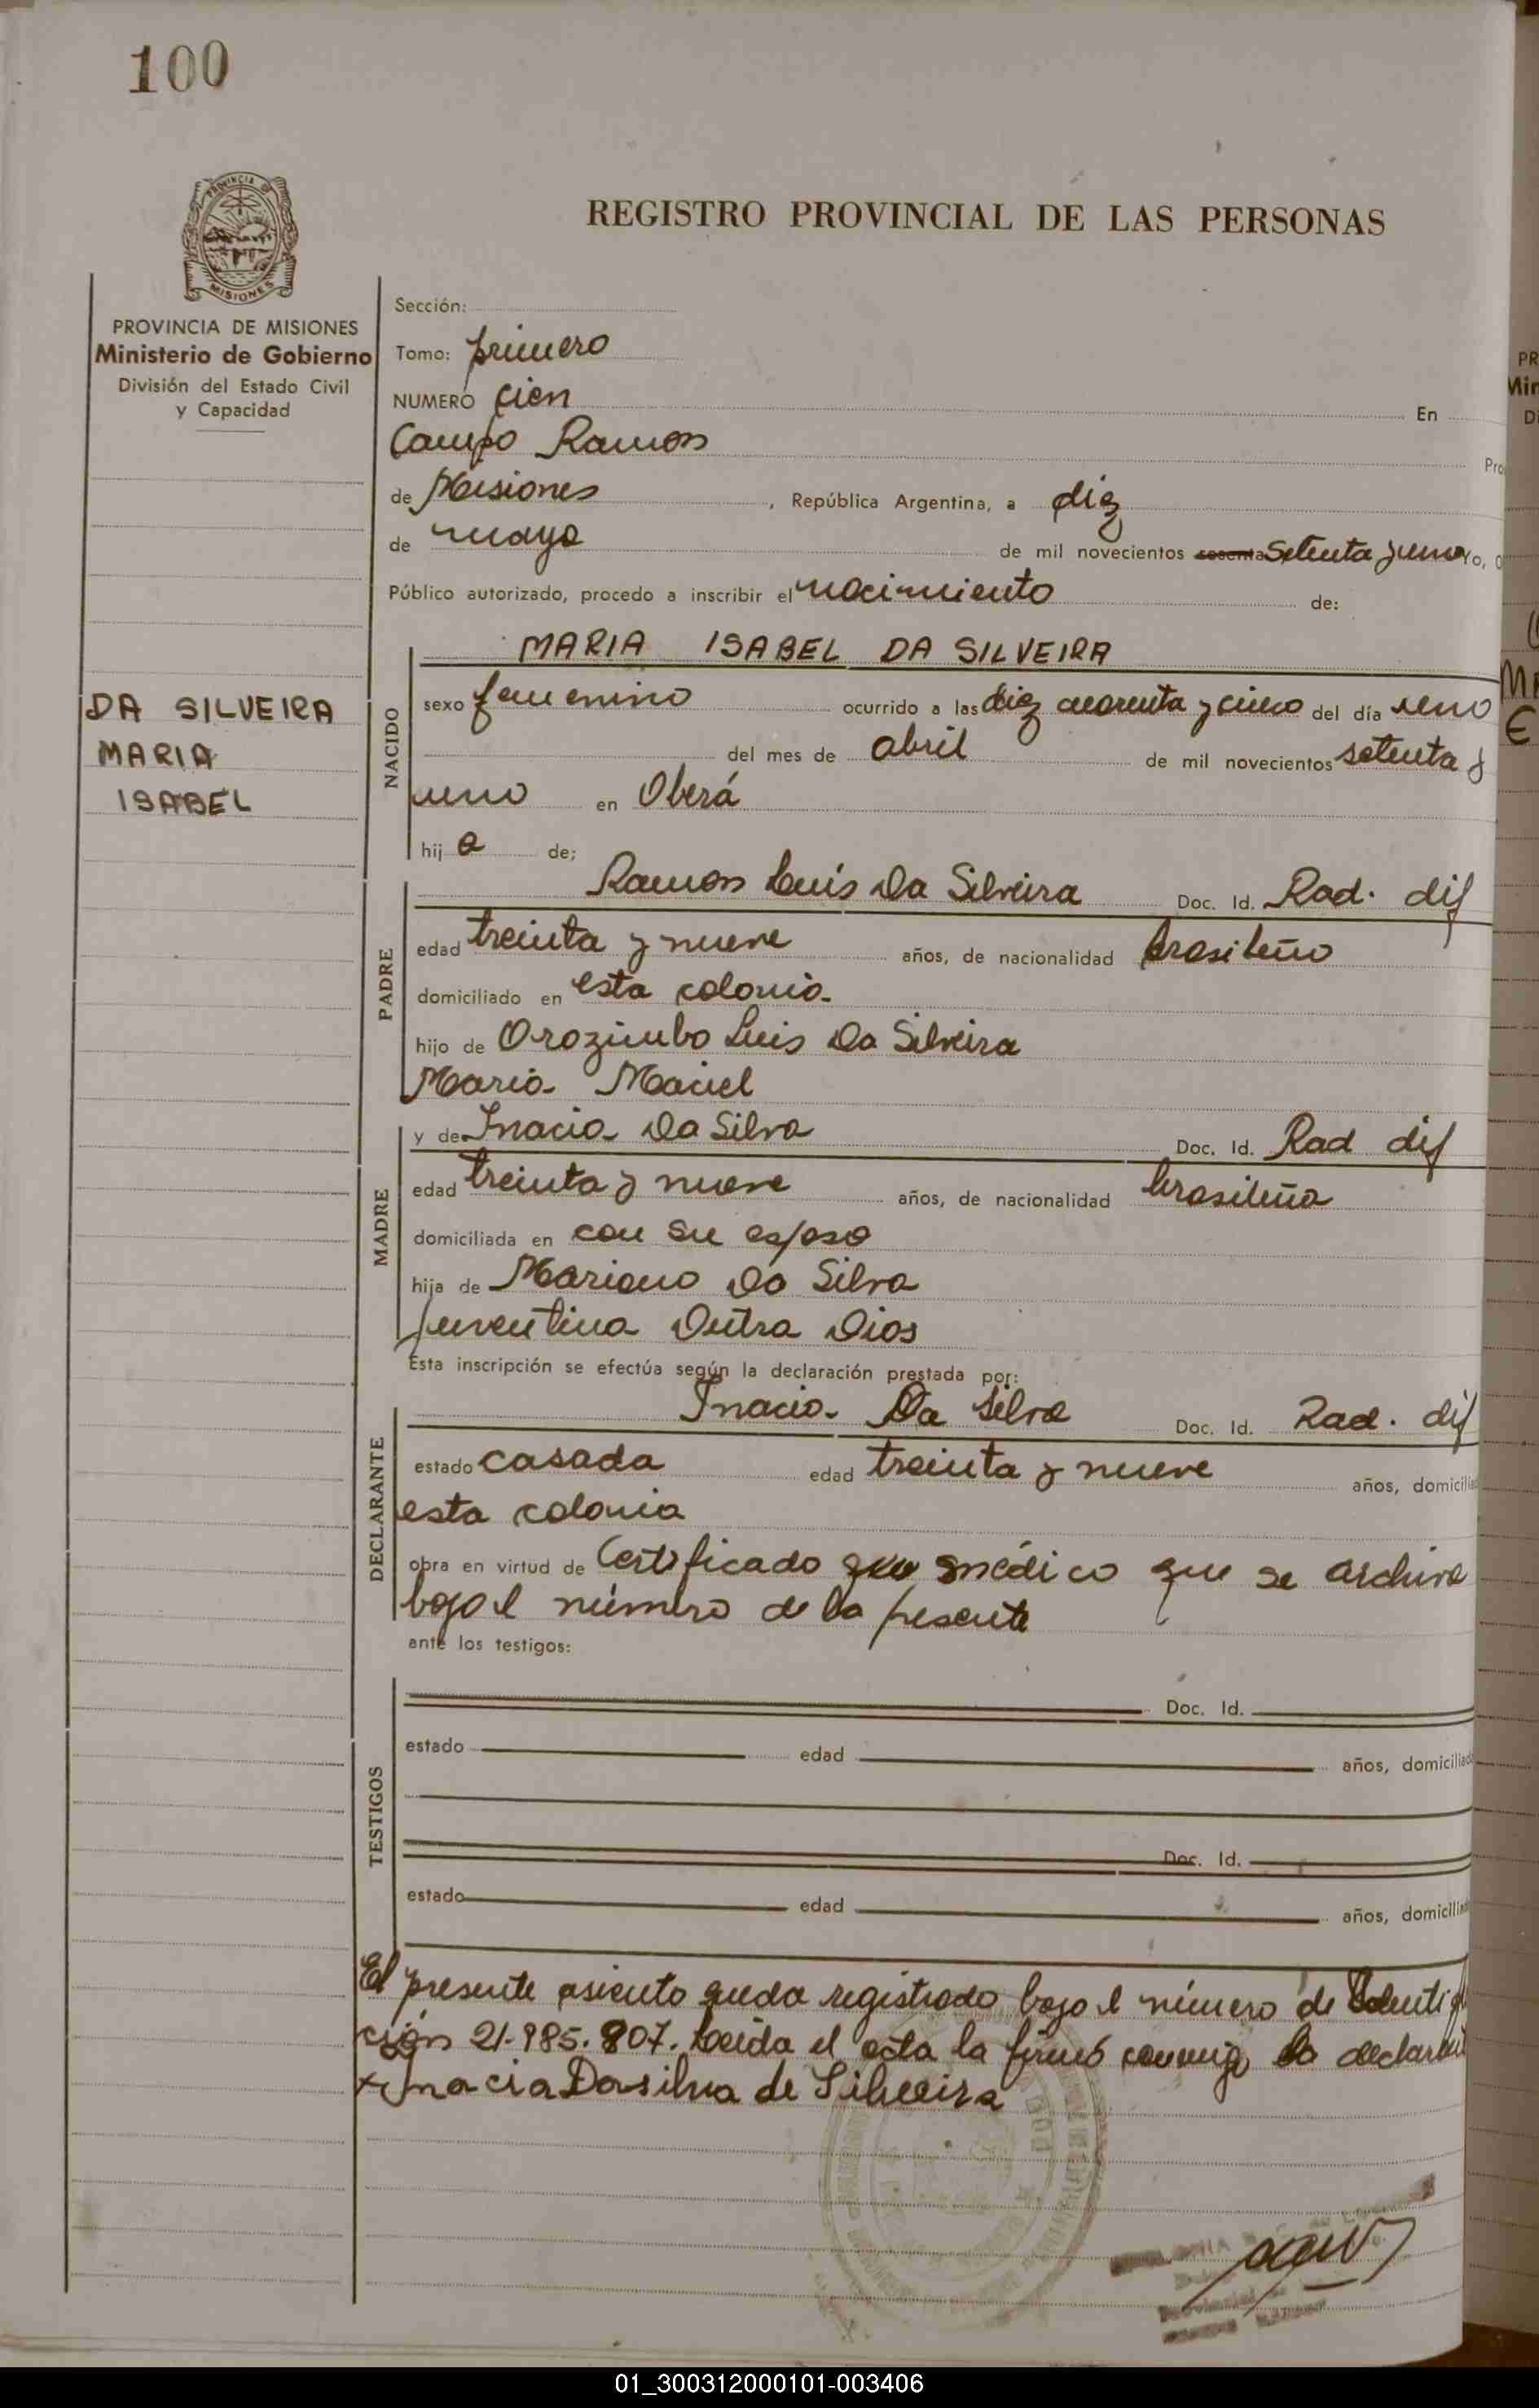 100
PROVINCIA DE
MISIONES
REGISTRO PROVINCIAL DE LAS PERSONAS
PROVINCIA DE MISIONES
Ministerio de Gobierno
División del Estado Civil
y Capacidad
DA SILVEIRA
MARIA
ISABEL
Sección:
Tomo: primero
NUMERO cien En
Campo Ramon Pro
de Misiones, República Argentina, a diez
de mayo de mil novecientos sesenta Setenta y uno yo, O
Público autorizado, procedo a inscribir el nacimiento de:
NACIDO
MARIA ISABEL DA SILVEIRA
sexo femenino ocurrido a las diez cuarenta y cinco del día uno
del mes de abril de mil novecientos setenta y
uno en Oberá
hij a de;
PADRE
Ramon Luis Da Silveira Doc. Id. Rad. dif
edad treinta y nueve años, de nacionalidad brasileño
domiciliado en esta colonia
hijo de Orozimbo Luis Da Silveira
Maria Maciel
MADRE
y de Inacia Da Silva Doc. Id. Rad dif
edad treinta y nueve años, de nacionalidad brasileña
domiciliada en con su esposo
hija de Mariano Da Silva
Juventina Dutra Dios
Esta inscripción se efectúa según la declaración prestada por:
DECLARANTE
Inacia Da Silva Doc. Id. Rad. dif
estado casada edad treinta y nueve años, domicilia
esta colonia
obra en virtud de Certificado que médico que se archiva
bajo el número de la presente
ante los testigos:
TESTIGOS
Doc. Id.
estado edad años, domiciliad
Doc. Id.
estado edad años, domicilia
El presente asiento queda registrado bajo el número de Identifi
ción 21.985.807. Leida el acta la firmó conmigo la declarant
x Inacia Dasilva de Silveira
01_300312000101-003406